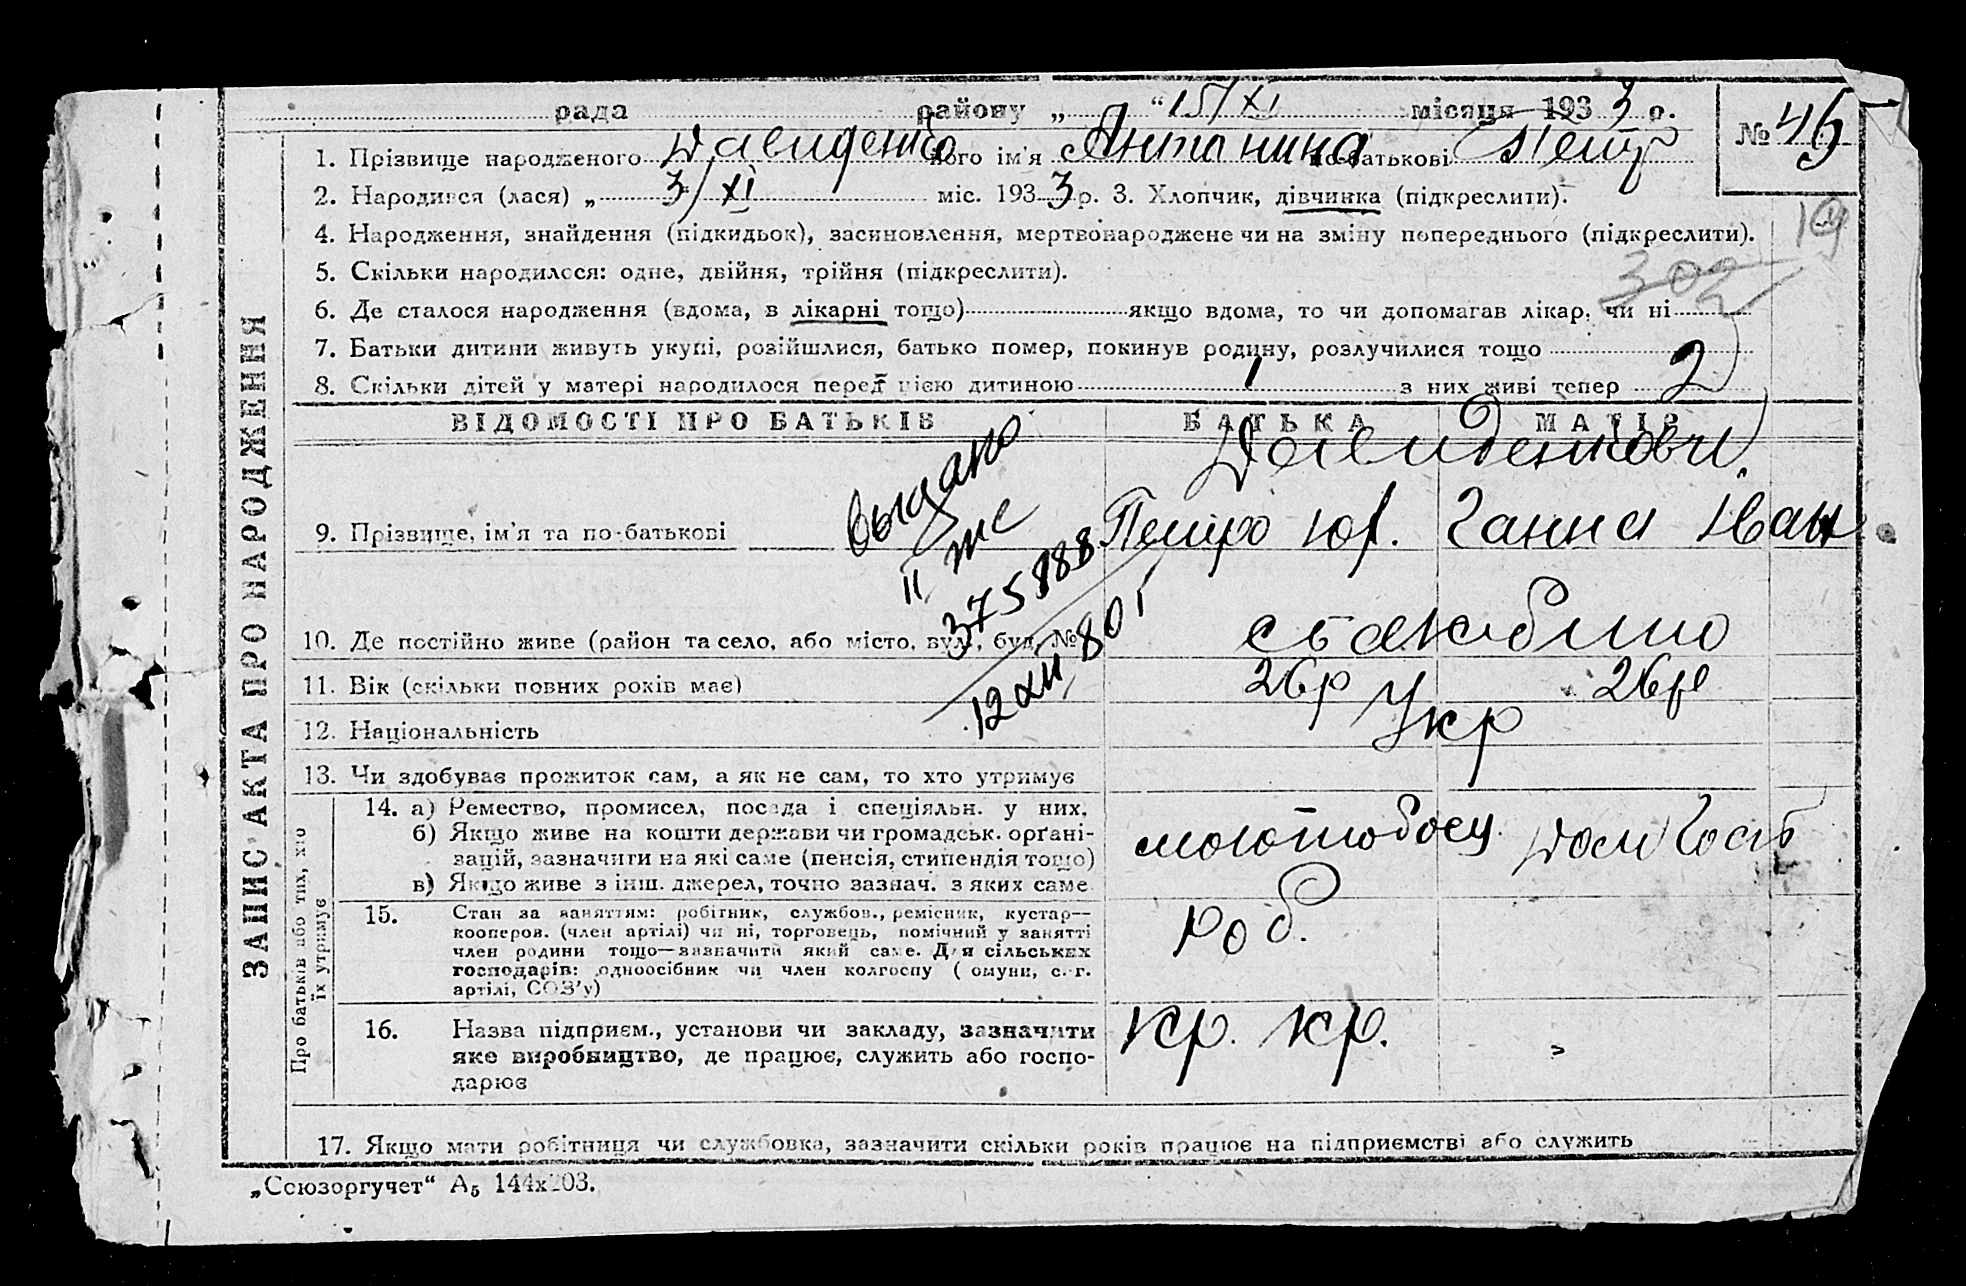 рада району „ “ 15/XI місяця 1933 р. № 45
1. Прізвище народженого Давиденко його ім'я Антонина по-батькові Петр
2. Народився (лася) „ 3/XI міс. 1933 р. 3. Хлопчик, дівчинка (підкреслити).
19
4. Народження, знайдення (підкидьок), засиновлення, мертвонароджене чи на зміну попереднього (підкреслити).
302
5. Скільки народилося: одне, двійня, трійня (підкреслити).
6. Де сталося народження (вдома, в лікарні тощо) якщо вдома, то чи допомагав лікар, чи ні
7. Батьки дитини живуть укупі, розійшлися, батько помер, покинув родину, розлучилися тощо
8. Скільки дітей у матері народилося перед цією дитиною 1 з них живі тепер 2
ВІДОМОСТІ ПРО БАТЬКІВ БАТЬКА МАТІР
Давиденкови
9. Прізвище, ім'я та по-батькові Петро Юх. Ганна Іван
выдано
II же
375888
12 XII 80 г
10. Де постійно живе (район та село, або місто, вул., буд. №
11. Вік (скільки повних років має) 26р 26р
12. Національність Укр
13. Чи здобував прожиток сам, а як не сам, то хто утримує
ЗАПИС АКТА ПРО НАРОДЖЕННЯ
Про батьків або тих, хто
їх утримує
14. а) Ремество, промисел, посада і спеціяльн. у них.
б) Якщо живе на кошти держави чи громадськ. орґані-
зацій, зазначити на які саме (пенсія, стипендія тощо)
в) Якщо живе з інш. джерел, точно зазнач. з яких саме
молотобоец дом госп
15. Стан за заняттям: робітник, службов., ремісник, кустар—
кооперов. (член артілі) чи ні, торговець, помічний у занятті
член родини тощо—зазначити який саме. Для сільських
господарів: одноосібник чи член колгоспу ( омуни, с.-г.
артілі, СОЗ'у)
роб.
16. Назва підприєм., установи чи закладу, зазначити
яке виробництво, де працює, служить або госпо-
дарює
кр. кр.
17. Якщо мати робітниця чи службовка, зазначити скільки років працює на підприємстві або служить
„Союзоргучет“ А5 144х203.